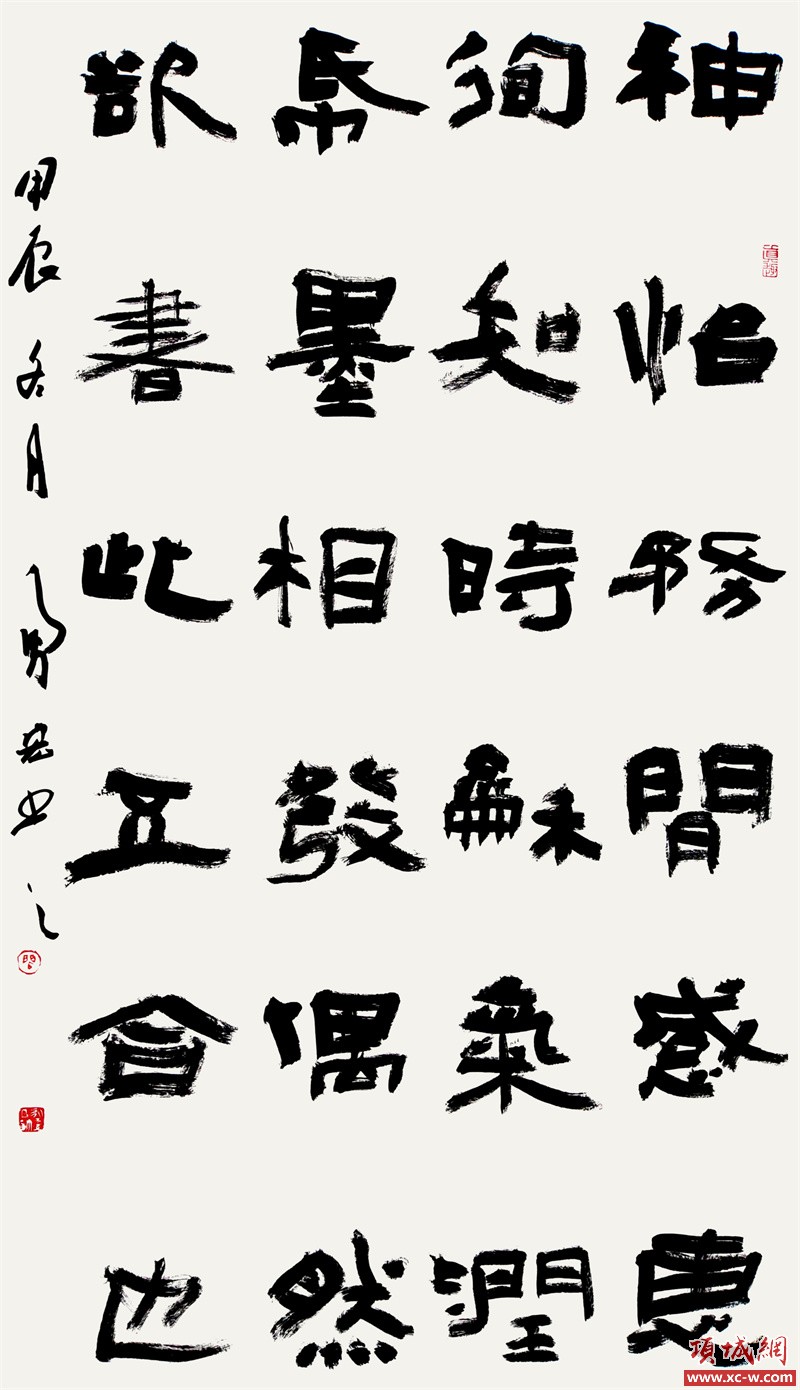 神怡務閒感惠
徇知時龢氣潤
帋墨相發偶然
欲書此五合也
甲辰冬月 书之
項城網
www.xc-w.com